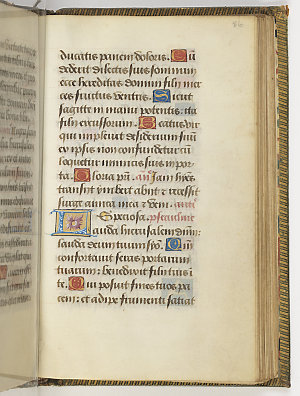 ducatis panem doloris. Cū
dederit dilectis suis somnum
ecce hereditas domini filii mer
ces fructus ventris. Sicut
sagitte in manu potentis: ita
filii excussorum. Beatus vir
qui implevit desiderium suū
ex ipsis non confundetur cū
loquetur inimicis suis in por
ta. Gloria pri. an̄. Iam hyems
transiit ymber abiit et recessit
surge amica mea et veni. anti
Speciosa. psalmus
Lauda hierusalem dnm:
lauda deum tuum syon. Qm̄
confortavit seras portarum
tuarum: benedixit filiis tuis ī
te. Qui posuit fines tuos pa
cem: et adipe frumenti satiat